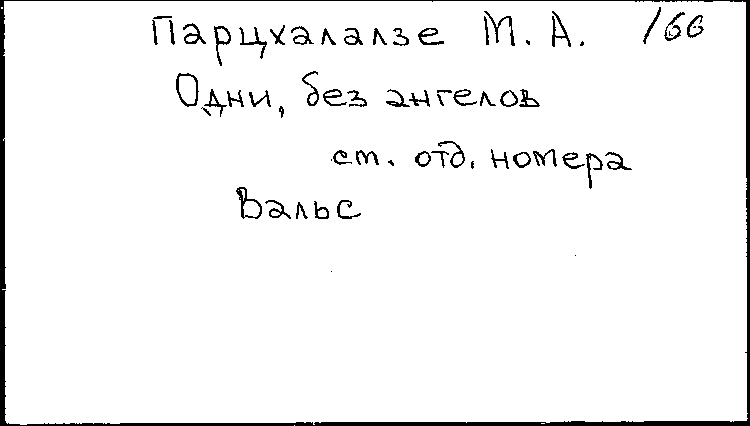 Парцхалалзе М. А. /66
Одни, без ангелов
ст. отд. номера
Вальс